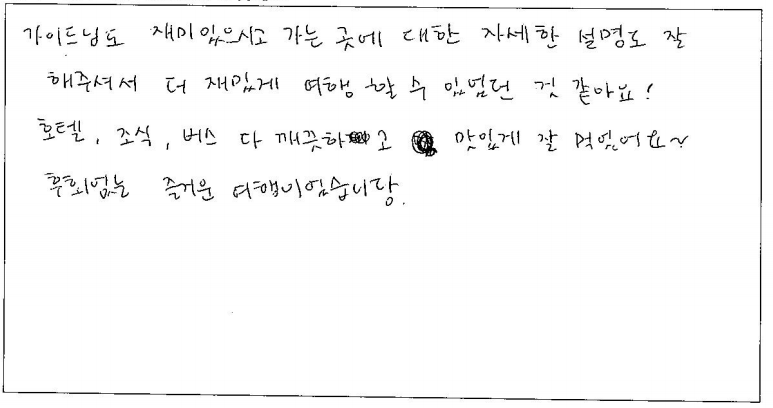 가이드님도 재미있으시고 가는 곳에 대한 자세한 설명도 잘
해주셔서 더 재밌게 여행 할 수 있었던 것 같아요!
호텔, 조식, 버스 다 깨끗하고 맛있게 잘 먹었어요~
후회없는 즐거운 여행이었습니당.